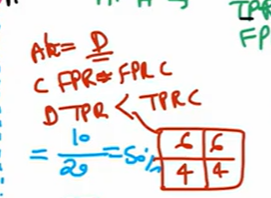 TPR
FP
Ab = D
C FPR = FPR C
D TPR < TPR C
= 10/20 = 50%
6 6
4 4